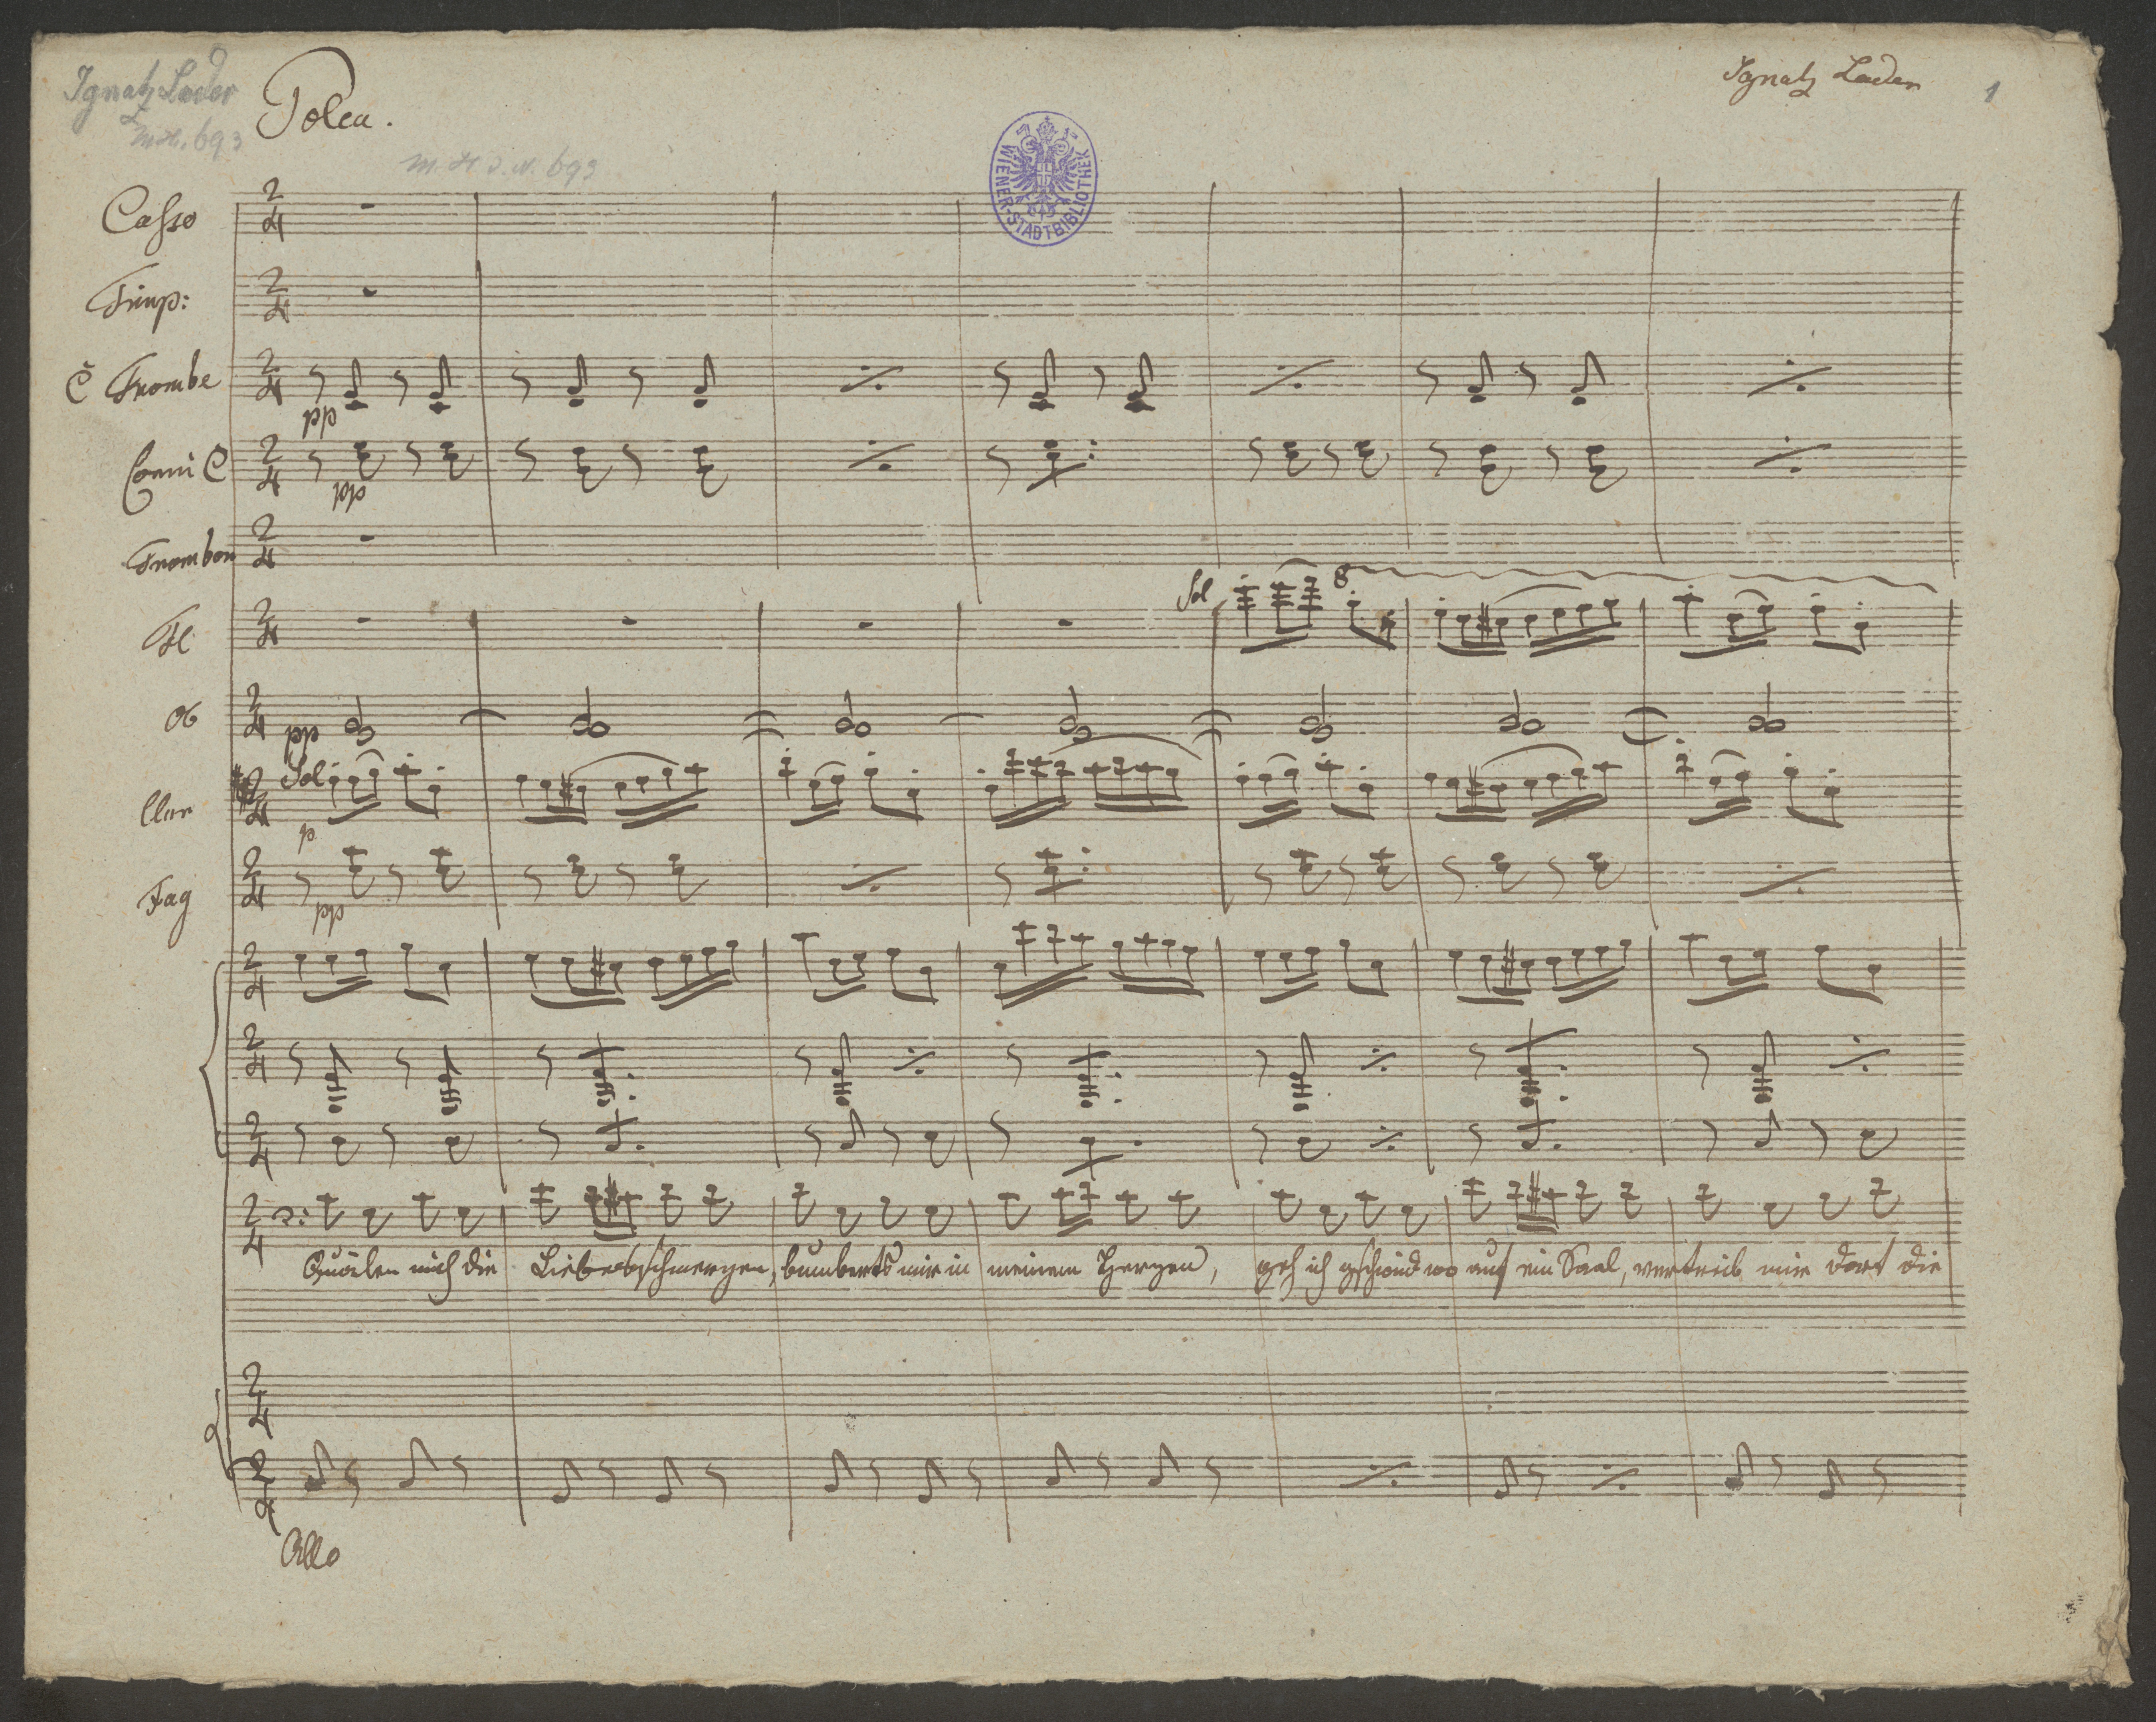 Ignatz Lader
M.H. 693
Polca.
Ignatz Lader
1
M. H. I. N. 693
WIENER-STADTBIBLIOTHEK
Casso
Timp:
C Trombe
pp
Corni C
pp
Trombon
Fl
Sol
8
Ob
pp
Clar
Sol
p
Fag
pp
Quälen mich die Liebesschmerzen, bumberts mir in meinem Herzen, geh ich gschwind wo auf ein Saal, vertreib mir dort die
Allo